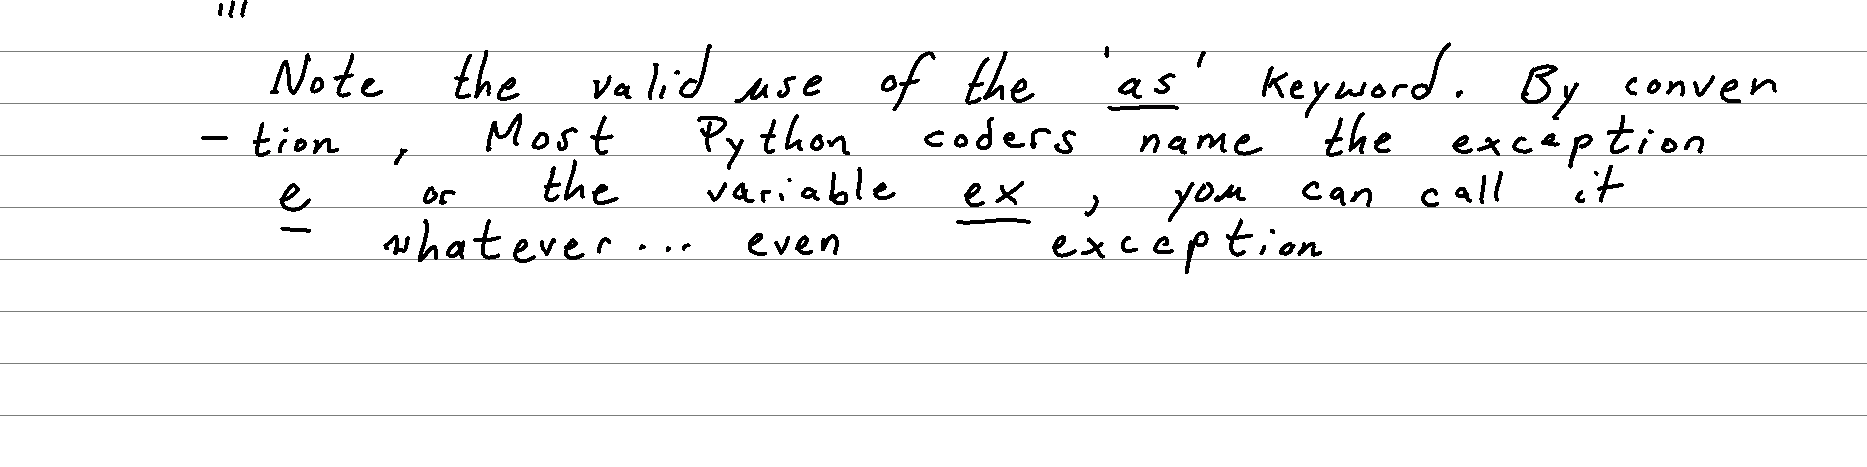 '''
Note the valid use of the 'as' keyword. By conven
-tion, Most Python coders name the exception
e or the variable ex, you can call it
whatever... even exception